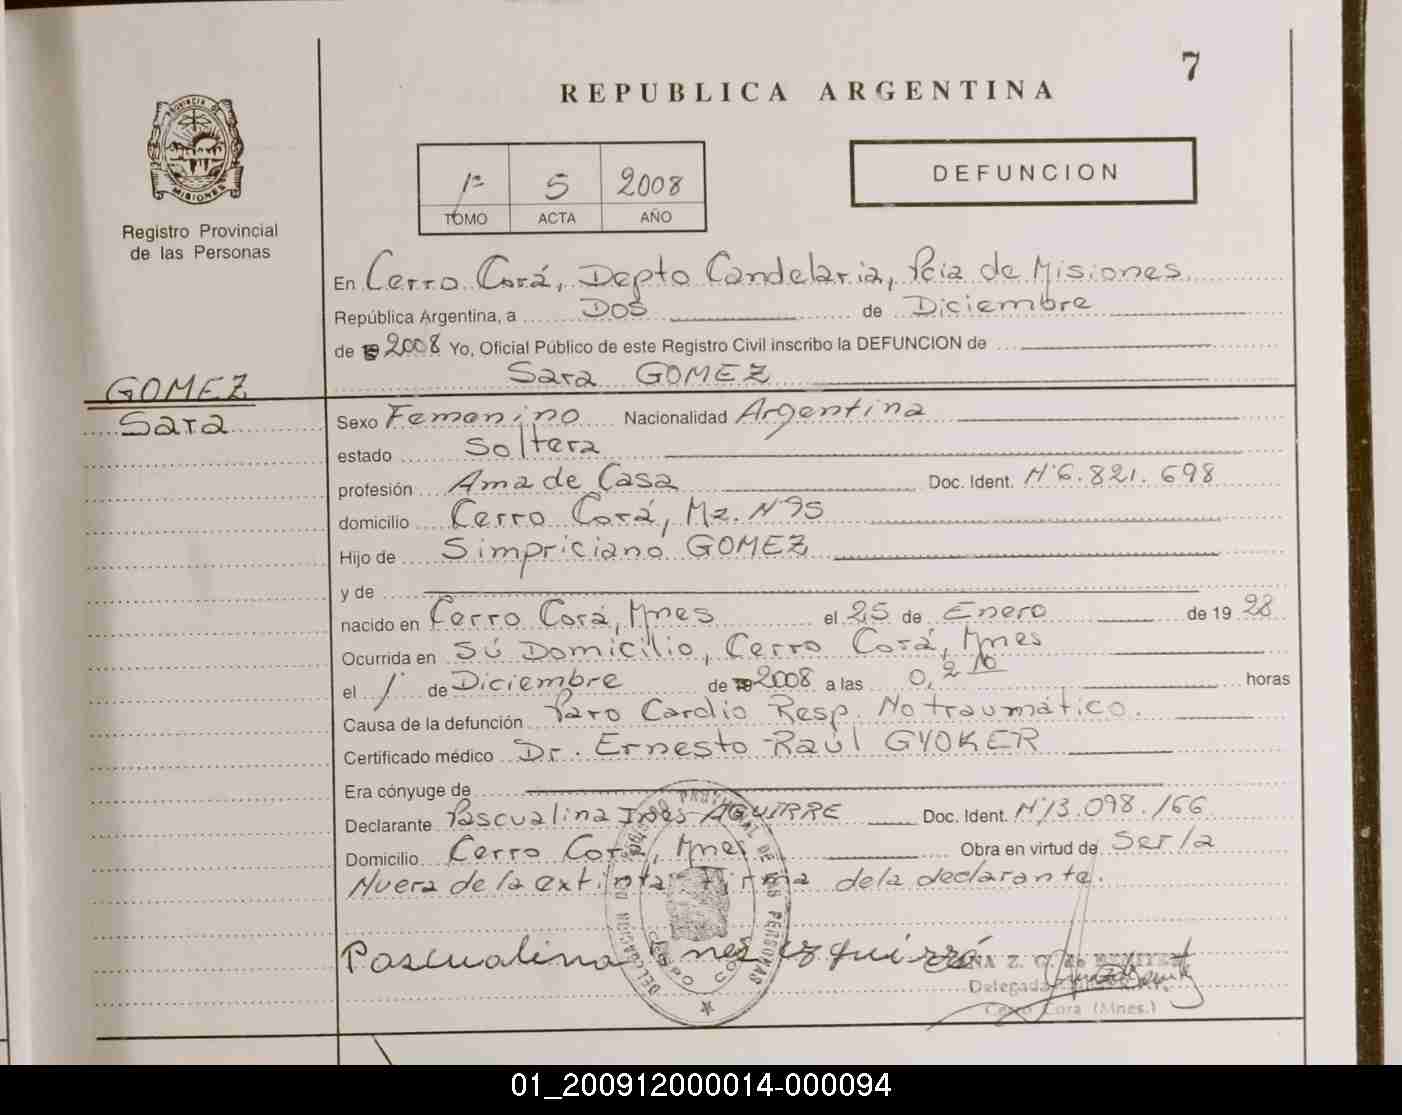 7
REPUBLICA ARGENTINA
PROVINCIA DE
MISIONES
Registro Provincial
de las Personas
1º 5 2008
TOMO ACTA AÑO
DEFUNCION
En Cerro Corá, Depto Candelaria, Pcia de Misiones
República Argentina, a Dos de Diciembre
de 2008 Yo, Oficial Público de este Registro Civil inscribo la DEFUNCION de
Sara GOMEZ
GOMEZ
Sara
Sexo Femenino Nacionalidad Argentina
estado Soltera
profesión Ama de Casa Doc. Ident. Nº 6.821.698
domicilio Cerro Corá, Mz. Nº 95
Hijo de Simpriciano GOMEZ
y de
nacido en Cerro Corá, Mnes el 25 de Enero de 19 28
Ocurrida en Sú Domicilio, Cerro Corá, Mnes
el 1º de Diciembre de 2008 a las 0,2 horas
Causa de la defunción Paro Cardio Resp. No traumático.
Certificado médico Dr. Ernesto Raúl GYOKER
Era cónyuge de
Declarante Pascualina Ines AGUIRRE Doc. Ident. Nº 13.098.166
Domicilio Cerro Corá, Mnes Obra en virtud de Ser la
Nuera de la extinta. Firma de la declarante.
Pascualina Ines
REGISTRO PROVINCIAL DE LAS PERSONAS
Delegada
Cerro Cora (Mnes.)
01_200912000014-000094